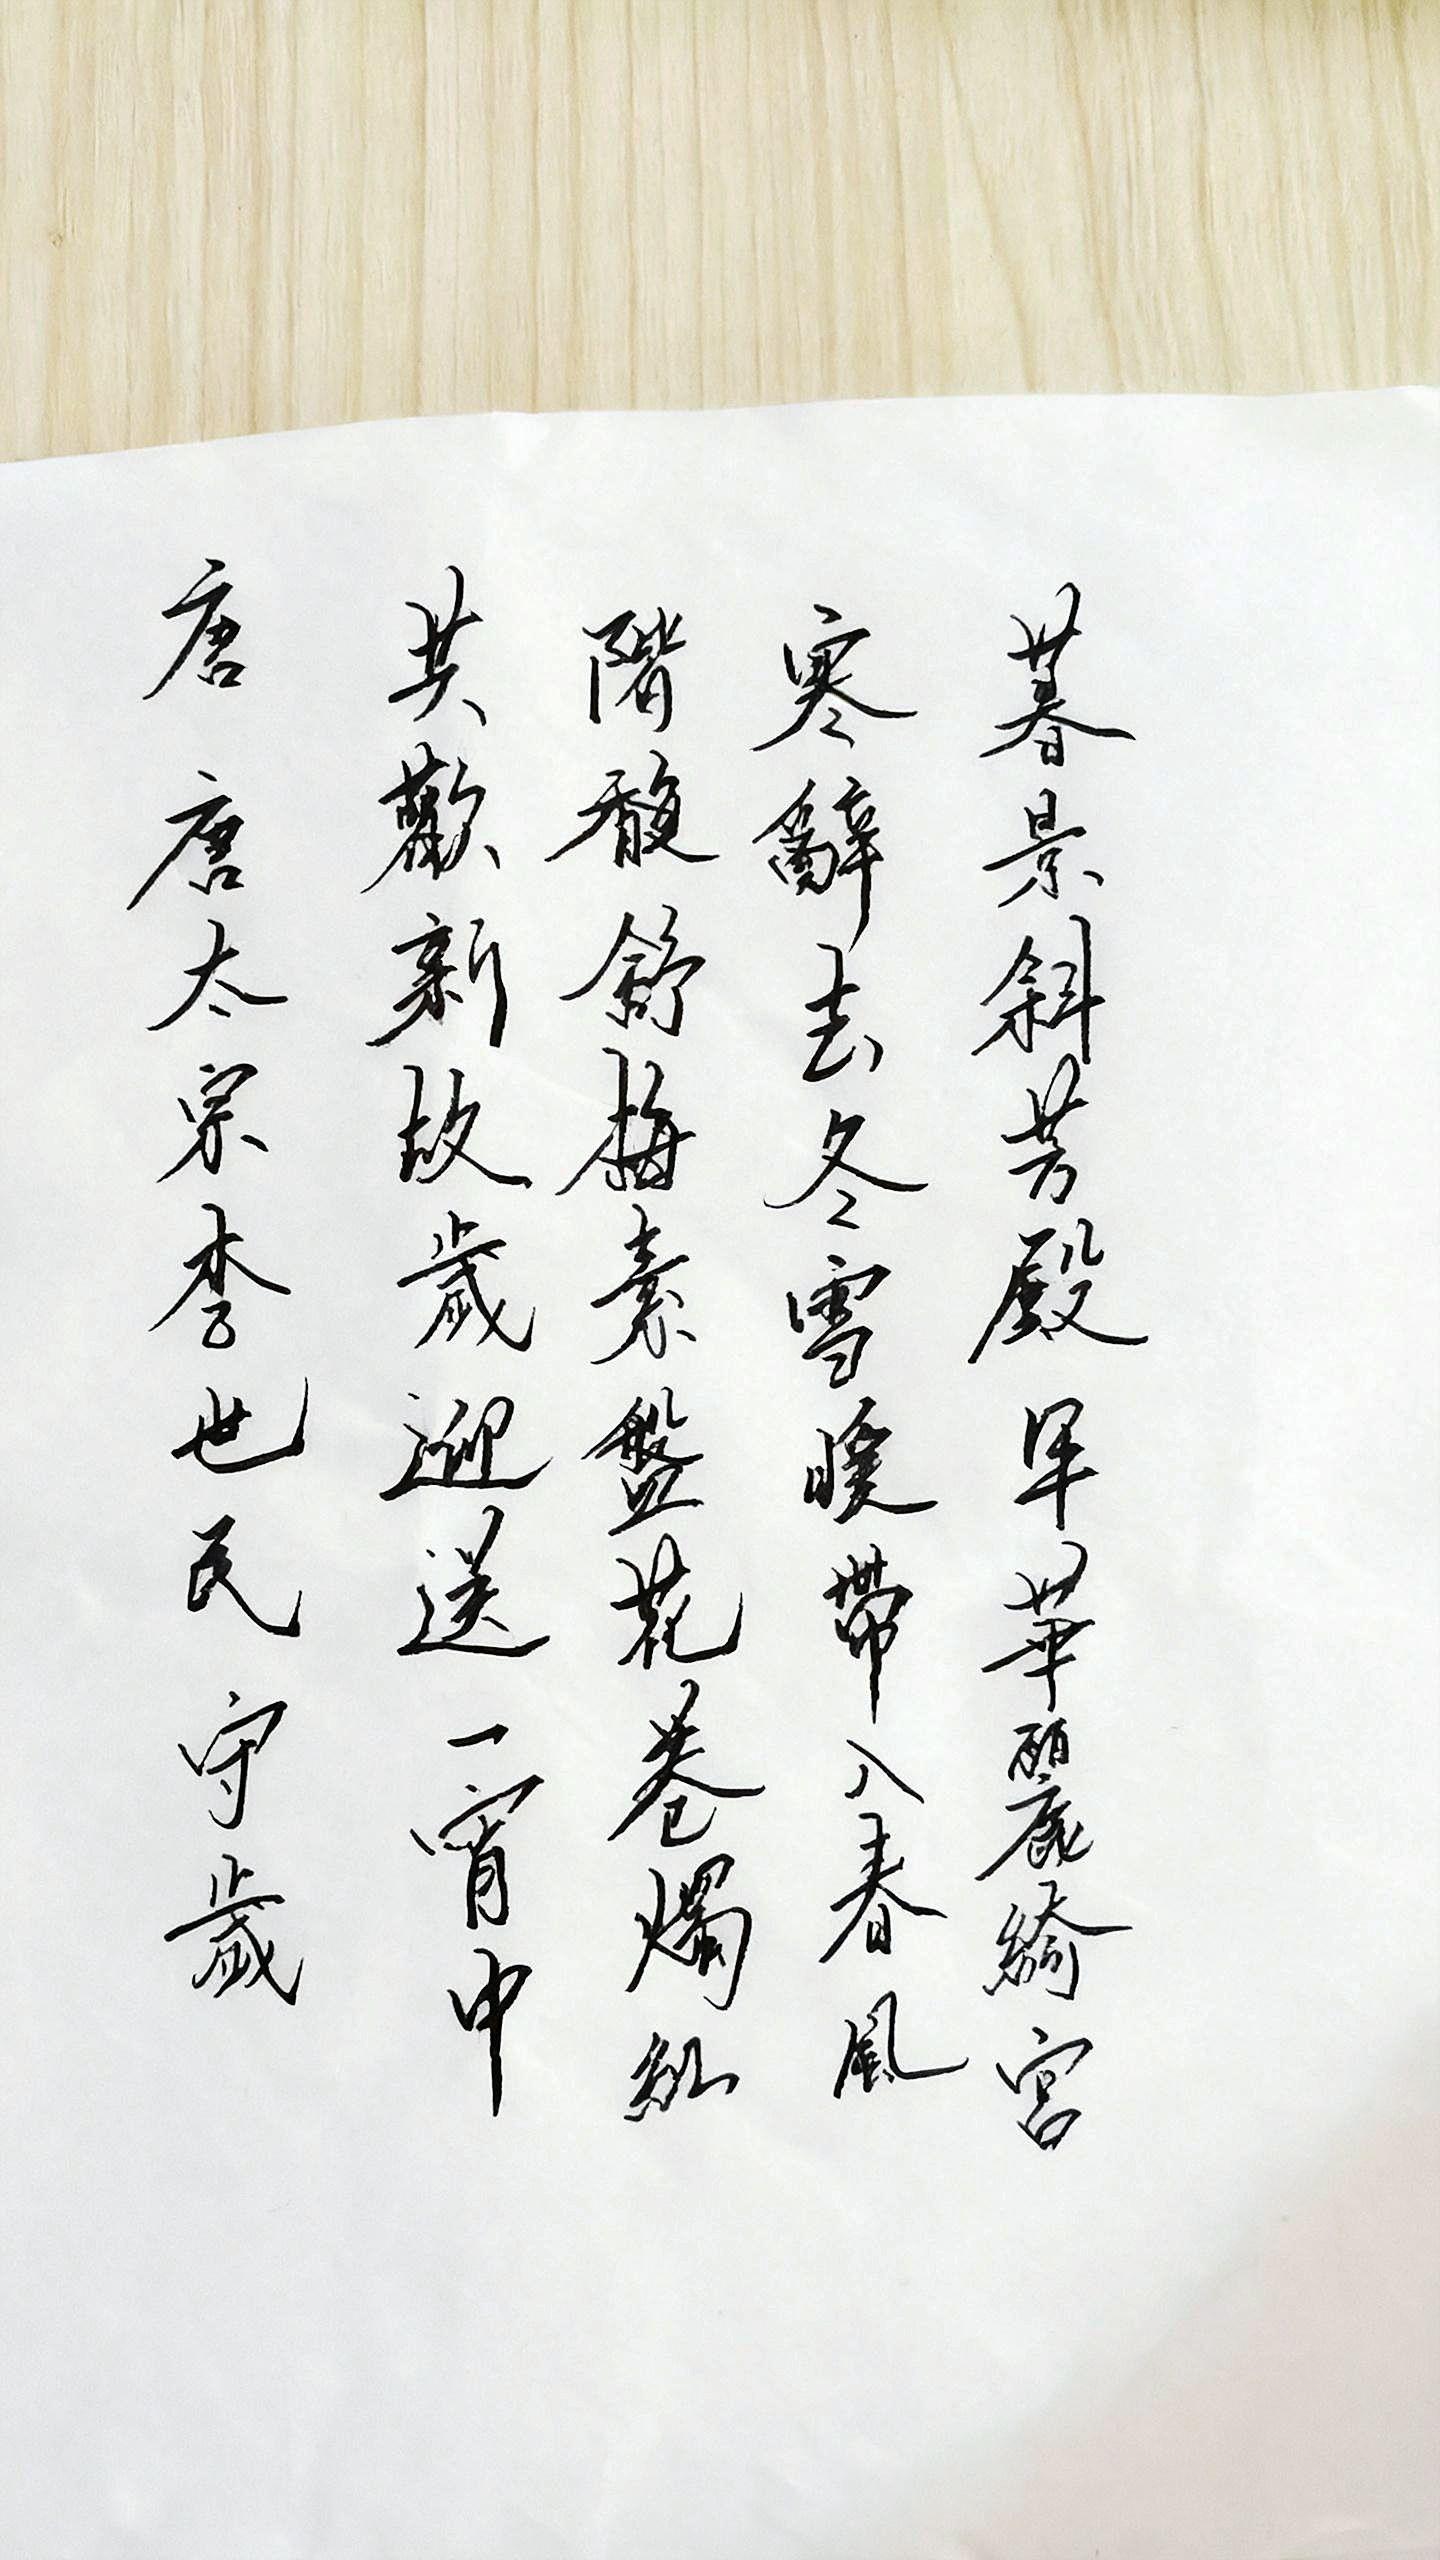 暮景斜芳殿年華麗綺宮
寒辭去冬雪暖帶入春風
階馥舒梅素盤花卷燭紅
共歡新故歲迎送一宵中
唐 唐太宗李世民 守歲